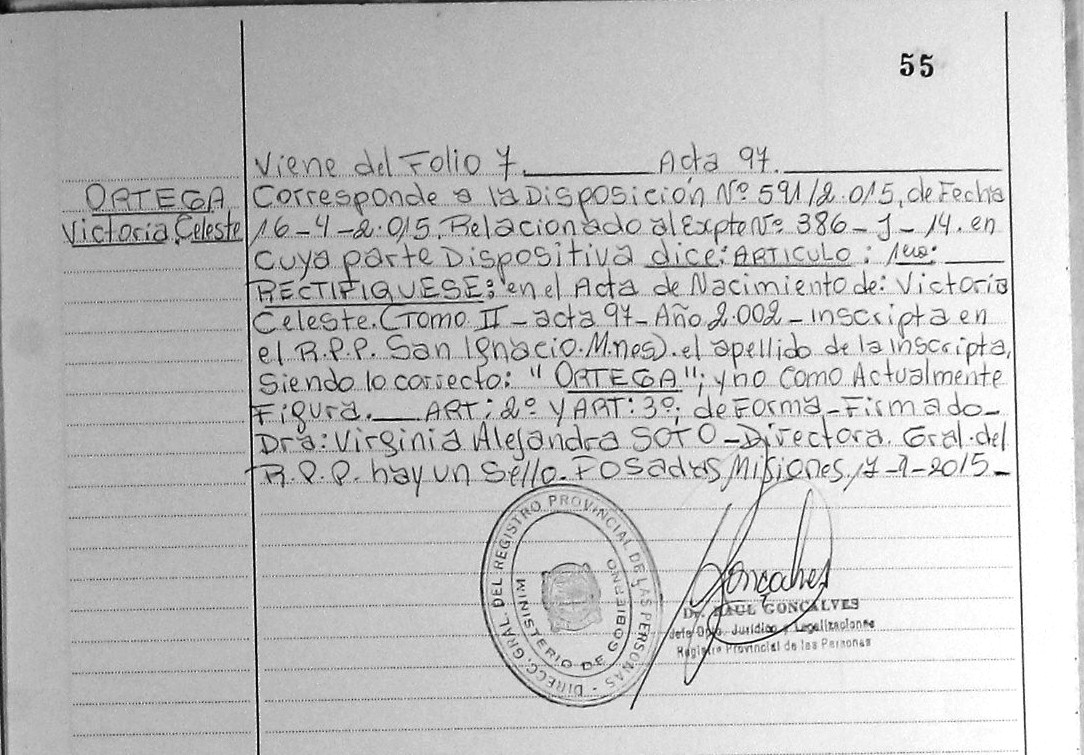 55
Viene del Folio 7.______ Acta 97.______
ORTEGA
Victoria Celeste
Corresponde a la Disposición Nº 591/2.015, de Fecha
16-4-2.015. Relacionado al Expte Nº 386-J-14. en
cuya parte Dispositiva dice: ARTICULO: 1ero:
RECTIFIQUESE: en el Acta de Nacimiento de: Victoria
Celeste. (Tomo II - acta 97 - Año 2.002 - inscripta en
el R.P.P. San Ignacio. Mnes). el apellido de la inscripta,
Siendo lo correcto: "ORTEGA"; y no como Actualmente
Figura.___ ART: 2º y ART: 3º; de Forma - Firmado -
Dra: Virginia Alejandra SOTO - Directora. Gral. del
R.P.P. hay un Sello. Posadas, Misiones, 17-7-2015-
DIRECC. GRAL. DEL REGISTRO PROVINCIAL DE LAS PERSONAS -
MINISTERIO DE GOBIERNO
Gonçalves
Dr. RAUL GONCALVES
Jefe Dpto. Jurídico y Legalizaciones
Registro Provincial de las Personas